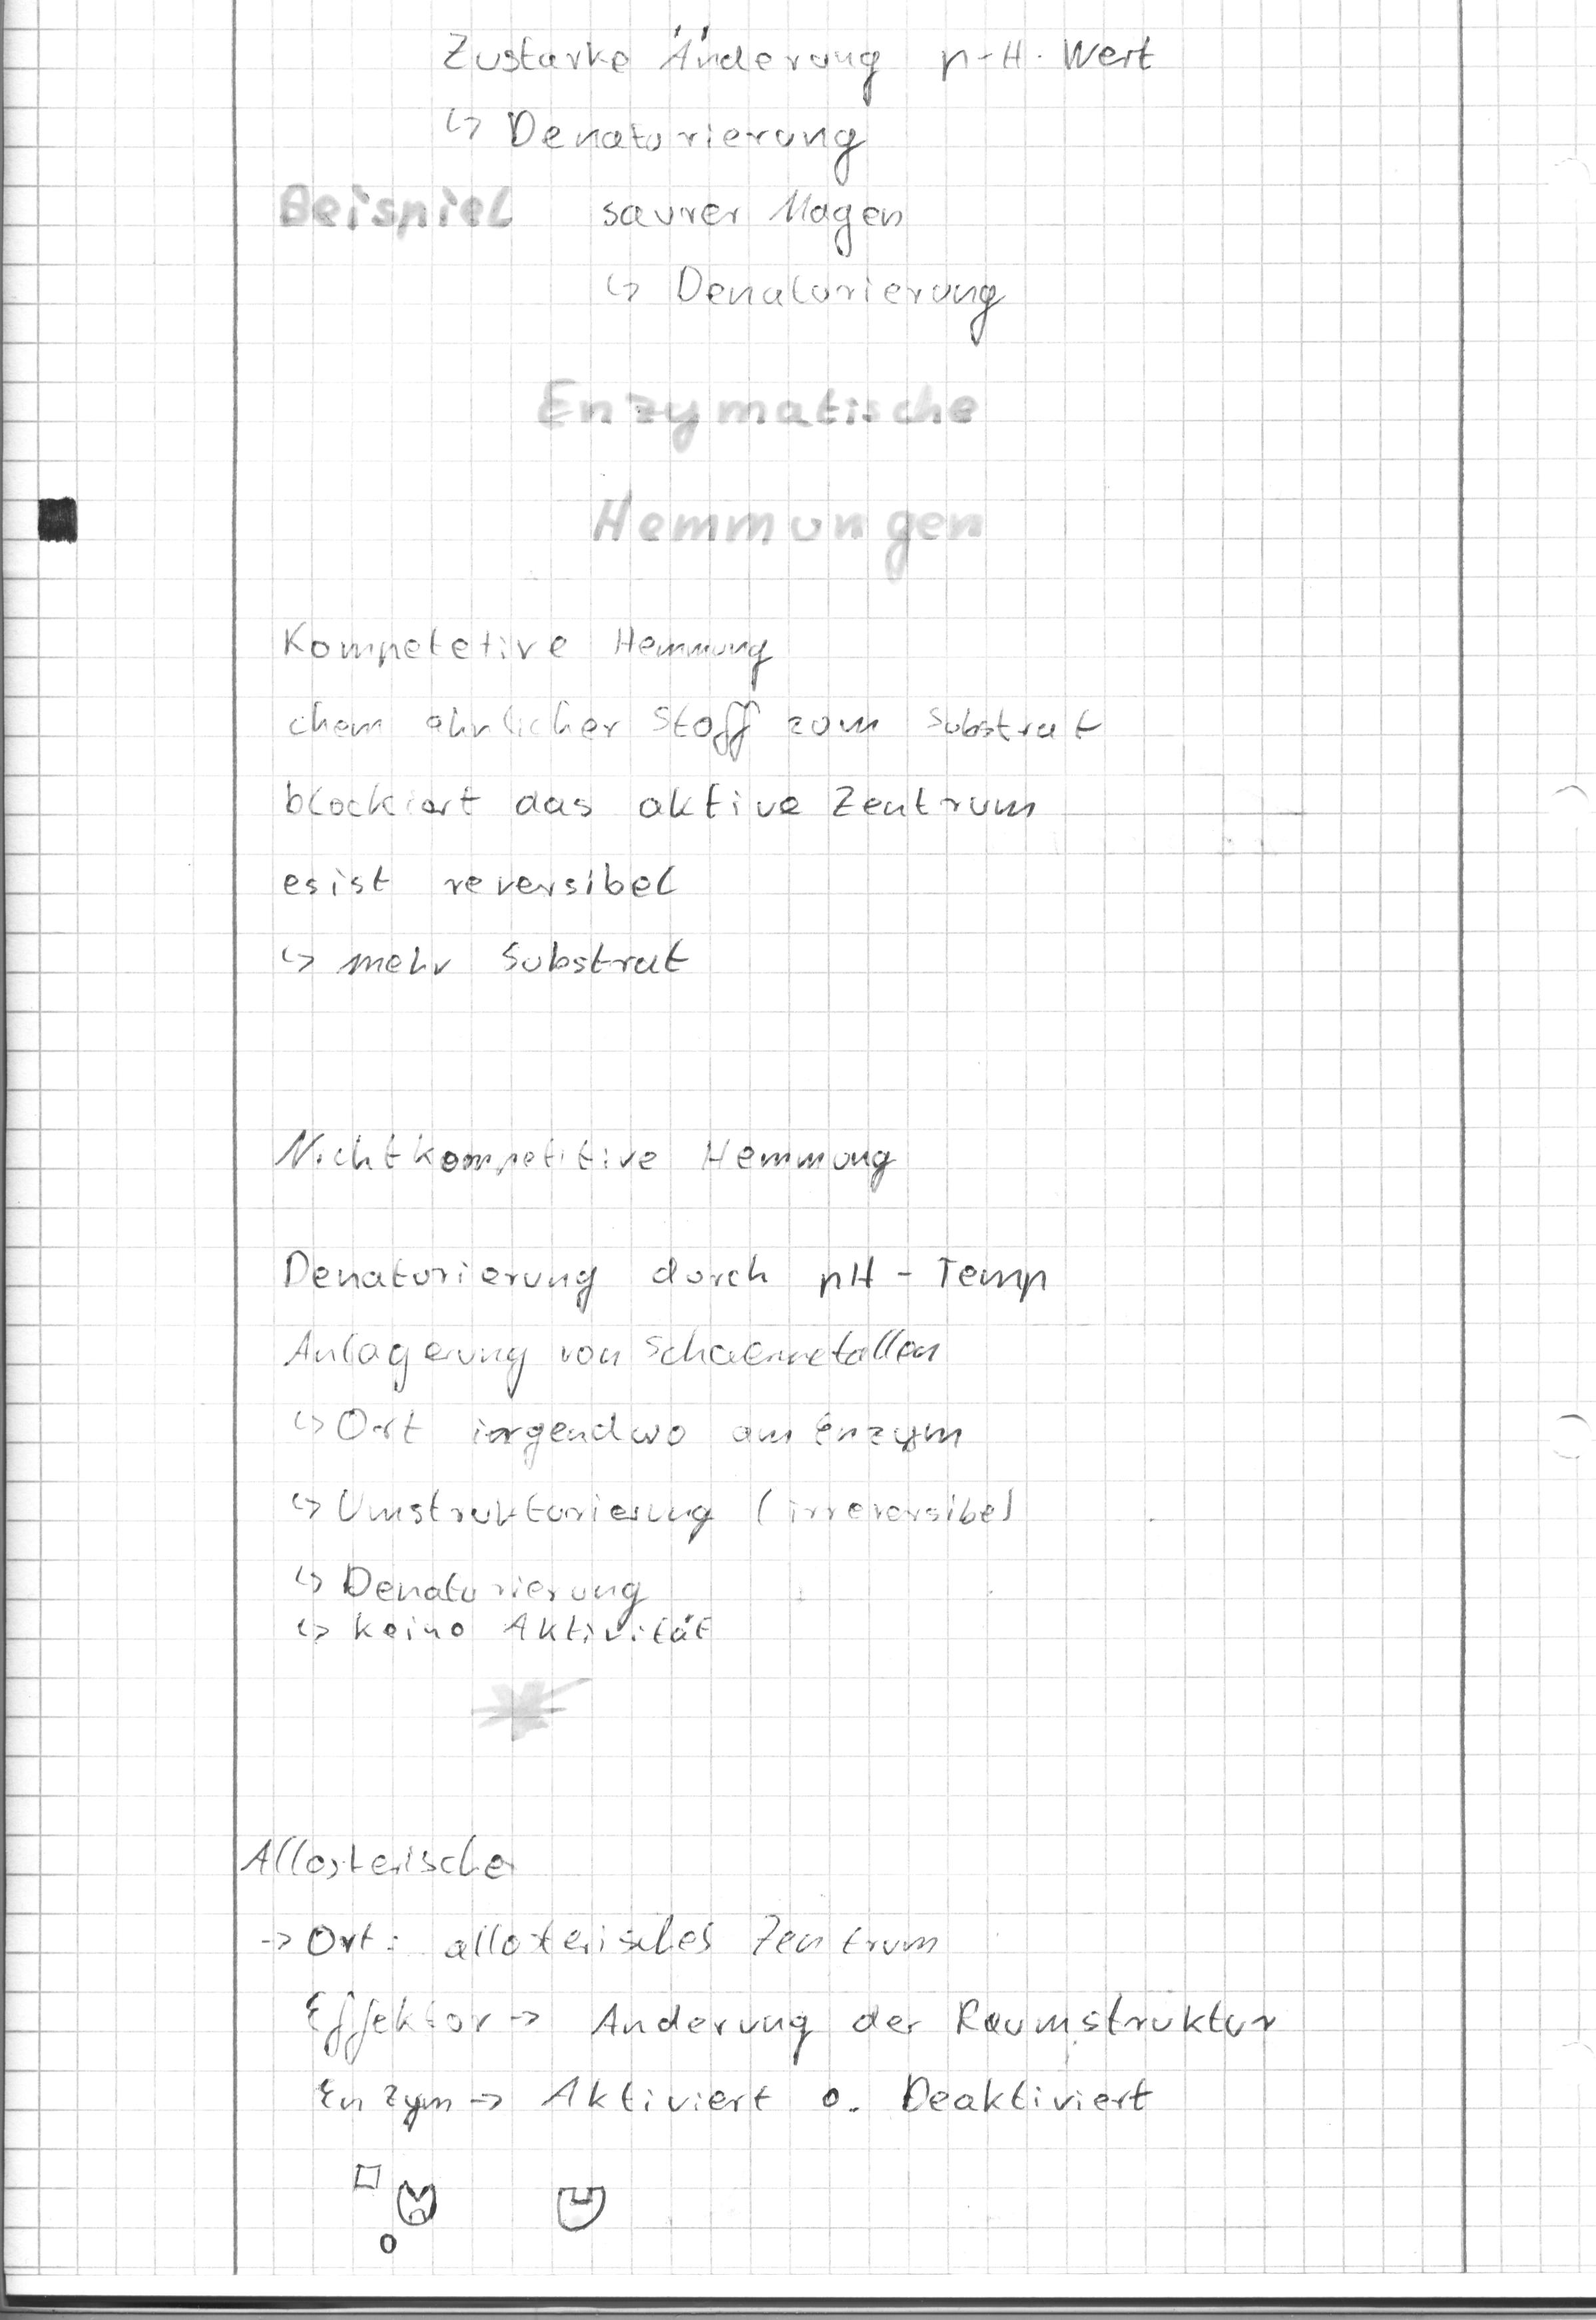 Zustarke Änderung p-H-Wert
↳ Denaturierung
Beispiel saurer Magen
↳ Denaturierung
Enzymatische
Hemmungen
Kompetetive Hemmung
chem ähnlicher Stoff zum Substrat
blockiert das aktive Zentrum
es ist reversibel
↳ mehr Substrat
Nichtkompetitive Hemmung
Denaturierung durch pH - Temp
Anlagerung von
↳ Ort irgendwo am Enzym
↳ Umstrukturierung (irreversibel
↳ Denaturierung
↳ keine Aktivität
Allosterische
-> Ort: allosterisches Zentrum
Effektor -> Änderung der Raumstruktur
Enzym -> Aktiviert o. Deaktiviert